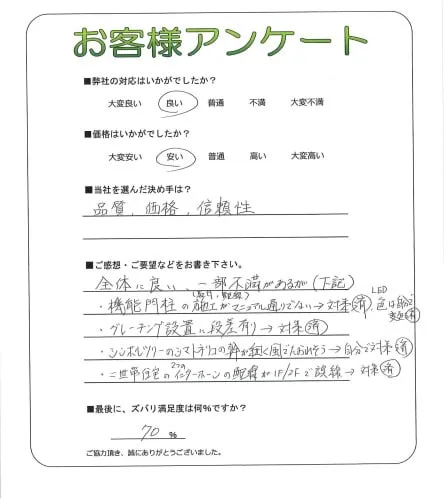 お客様アンケート
■弊社の対応はいかがでしたか？
大変良い 良い 普通 不満 大変不満
■価格はいかがでしたか？
大変安い 安い 普通 高い 大変高い
■当社を選んだ決め手は？
品質、価格、信頼性
■ご感想・ご要望などをお書き下さい。
全体に良い、一部不満があるが（下記）
・機能門柱の施工がマニュアル通りでない→対策済 LED 色は自分で
・グレーチング設置に段差有り→対策済
・シンボルツリーのシマトネリコの幹が細く風でたおれそう→自分で対策済
・二世帯住宅の2つのインターホーンの配線が1F/2Fで誤線→対策済
■最後に、ズバリ満足度は何％ですか？
70 %
ご協力頂き、誠にありがとうございました。